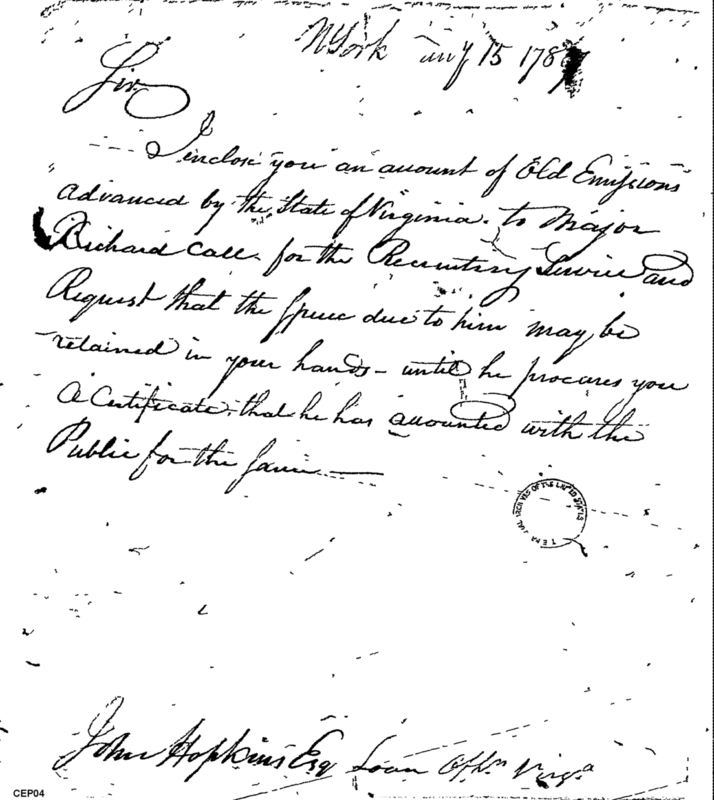 NYork 15 178
Sir
I inclose you an account of Old Emissions
advanced by the State of Virginia to Major
Richard Call for the Recruiting Service and
Request that the specie due to him may be
retained in your hands - until he procures you
A Certificate that he has accounted with the
Public for the same —
John Hopkins Esq Loan Offr Virga
CEP04